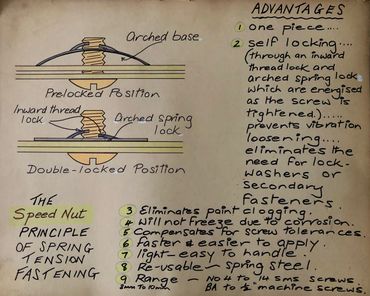 Arched base
Prelocked Position
Inward thread
lock
Arched spring
lock
Double-locked Position
THE
Speed Nut
PRINCIPLE
OF SPRING
TENSION
FASTENING
ADVANTAGES
1 one piece....
2 self locking....
(through an inward
thread lock and
arched spring lock
which are energised
as the screw is
tightened.).....
prevents vibration
loosening....
eliminates the
need for lock-
washers or
secondary
fasteners
3 Eliminates paint clogging.
4 Will not freeze due to corrosion.
5 Compensates for screw tolerances.
6 Faster & easier to apply.
7 light-easy to handle.
8 Re-usable - spring steel.
9 Range - No 4 to 14 sms screws.
3mm to 10mm BA to ½" machine screws.